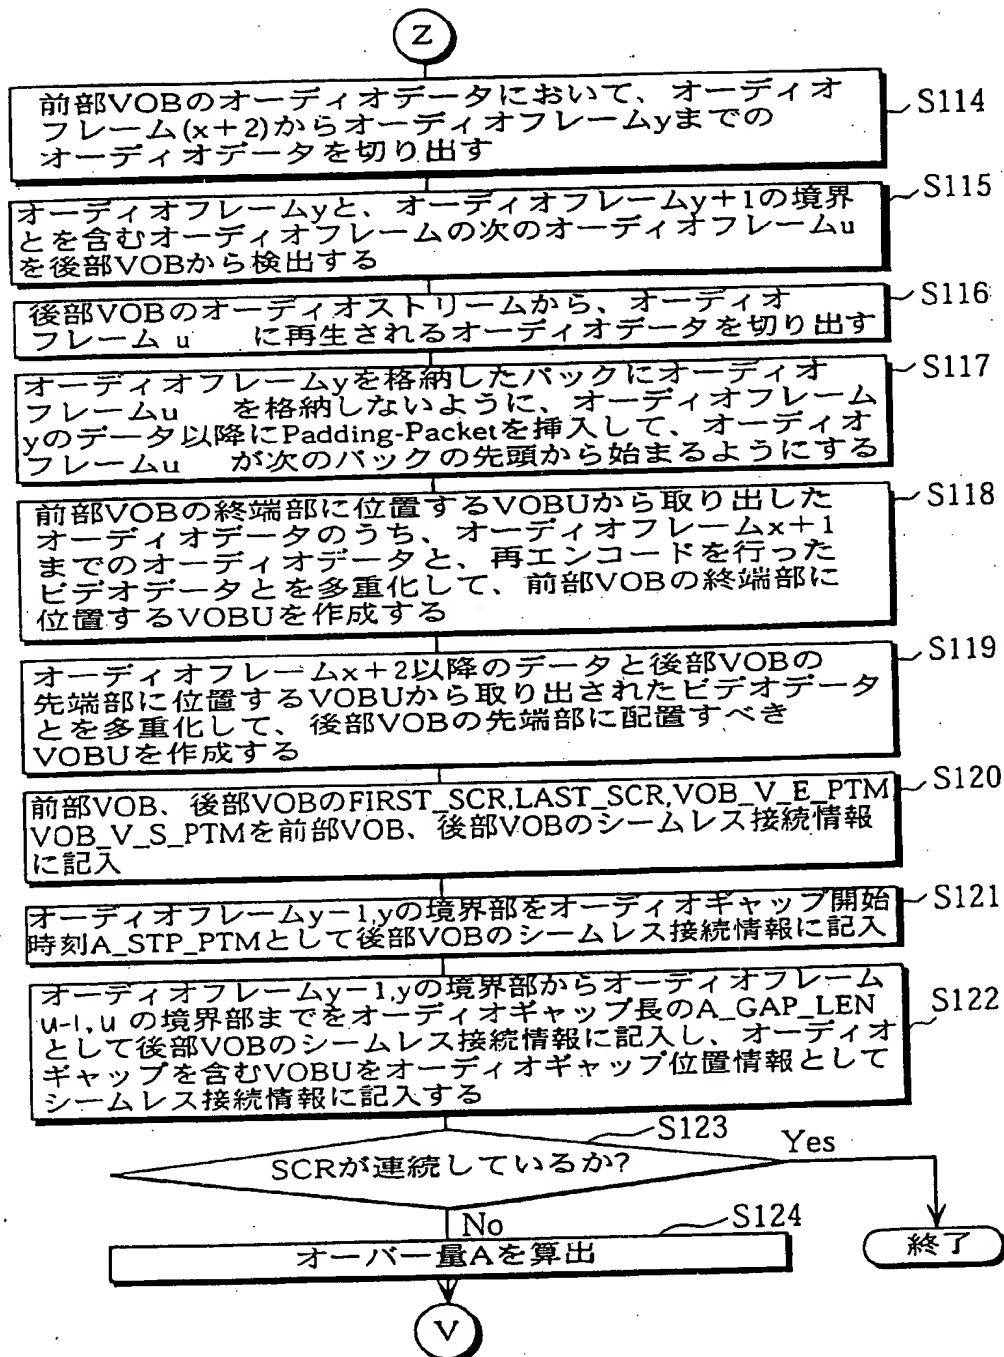 Z
前部VOBのオーディオデータにおいて、オーディオ
フレーム(x+2)からオーディオフレームyまでの
オーディオデータを切り出す
S114
オーディオフレームyと、オーディオフレームy+1の境界
とを含むオーディオフレームの次のオーディオフレームu
を後部VOBから検出する
S115
後部VOBのオーディオストリームから、オーディオ
フレーム u に再生されるオーディオデータを切り出す
S116
オーディオフレームyを格納したパックにオーディオ
フレームu を格納しないように、オーディオフレーム
yのデータ以降にPadding-Packetを挿入して、オーディオ
フレームu が次のパックの先頭から始まるようにする
S117
前部VOBの終端部に位置するVOBUから取り出した
オーディオデータのうち、オーディオフレームx+1
までのオーディオデータと、再エンコードを行った
ビデオデータとを多重化して、前部VOBの終端部に
位置するVOBUを作成する
S118
オーディオフレームx+2以降のデータと後部VOBの
先端部に位置するVOBUから取り出されたビデオデータ
とを多重化して、後部VOBの先端部に配置すべき
VOBUを作成する
S119
前部VOB、後部VOBのFIRST_SCR,LAST_SCR,VOB_V_E_PTM
VOB_V_S_PTMを前部VOB、後部VOBのシームレス接続情報
に記入
S120
オーディオフレームy-1,yの境界部をオーディオギャップ開始
時刻A_STP_PTMとして後部VOBのシームレス接続情報に記入
S121
オーディオフレームy-1,yの境界部からオーディオフレーム
u-1,u の境界部までをオーディオギャップ長のA_GAP_LEN
として後部VOBのシームレス接続情報に記入し、オーディオ
ギャップを含むVOBUをオーディオギャップ位置情報として
シームレス接続情報に記入する
S122
SCRが連続しているか?
S123
Yes
No
終了
オーバー量Aを算出
S124
V